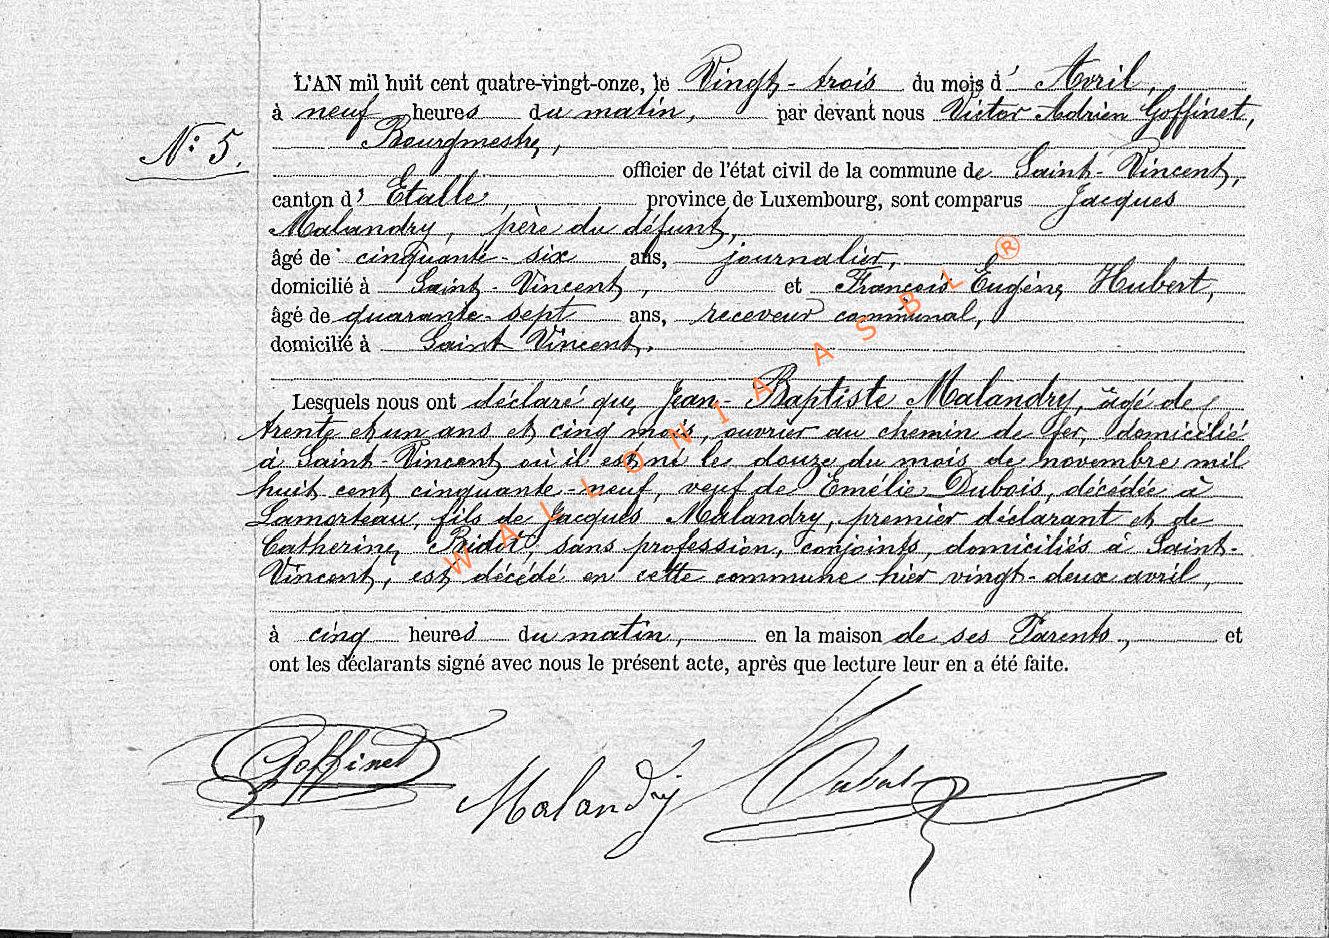 L'AN mil huit cent quatre-vingt-onze, le Vingt-trois du mois d' Avril,
à neuf heures du matin, par devant nous Victor Adrien Goffinet,
Bourgmestre,
N: 5.
officier de l'état civil de la commune de Saint-Vincent,
canton d' Etalle, province de Luxembourg, sont comparus Jacques
Malandry, père du défunt,
âgé de cinquante-six ans, journalier,
domicilié à Saint-Vincent, et François Eugène Hubert,
âgé de quarante-sept ans, receveur communal,
domicilié à Saint Vincent.
Lesquels nous ont déclaré que Jean-Baptiste Malandry, âgé de
trente et un ans et cinq mois, ouvrier au chemin de fer, domicilié
à Saint-Vincent où il est né le douze du mois de novembre mil
huit cent cinquante-neuf, veuf de Emélie Dubois, décédée à
Lamorteau, fils de Jacques Malandry, premier déclarant et de
Catherine, sans profession, conjoints, domiciliés à Saint-
Vincent, est décédé en cette commune hier vingt-deux avril,
à cinq heures du matin, en la maison de ses Parents, et
ont les déclarants signé avec nous le présent acte, après que lecture leur en a été faite.
Goffinet
Malandry
Hubert
WALLONIA ASBL ®